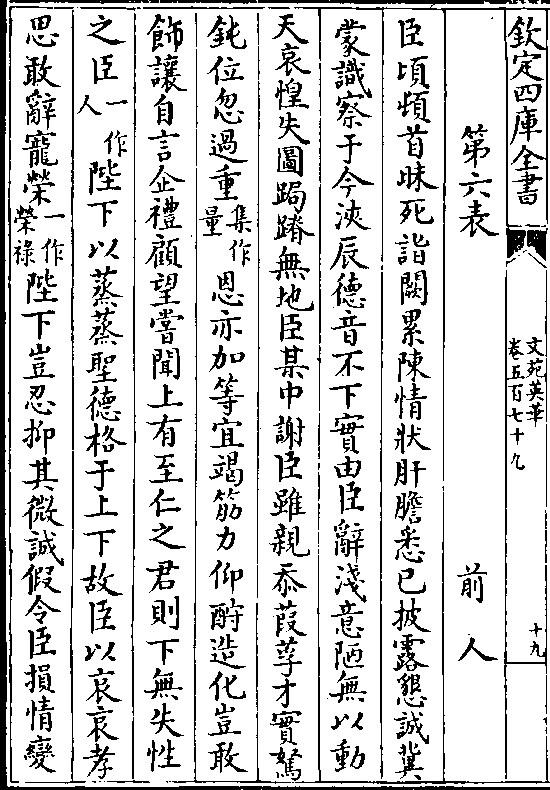 欽定四庫全書
文苑英華
卷五百七十九
十九
第六表 前人
臣頃頓首昧死詣闕累陳情狀肝膽悉已披露懇誠冀
蒙識察于今浹辰德音不下實由臣辭淺意陋無以動
天哀惶失圖跼蹐無地臣某中謝臣雖親忝葭莩才實駑
鈍位忽過重集作量恩亦加等宜竭筋力仰酧造化豈敢
飾讓自言企禮顧望嘗聞上有至仁之君則下無失性
之臣一作人陛下以蒸蒸聖德格于上下故臣以哀哀孝
思敢辭寵榮一作榮祿陛下豈忍抑其微誠假令臣損情變